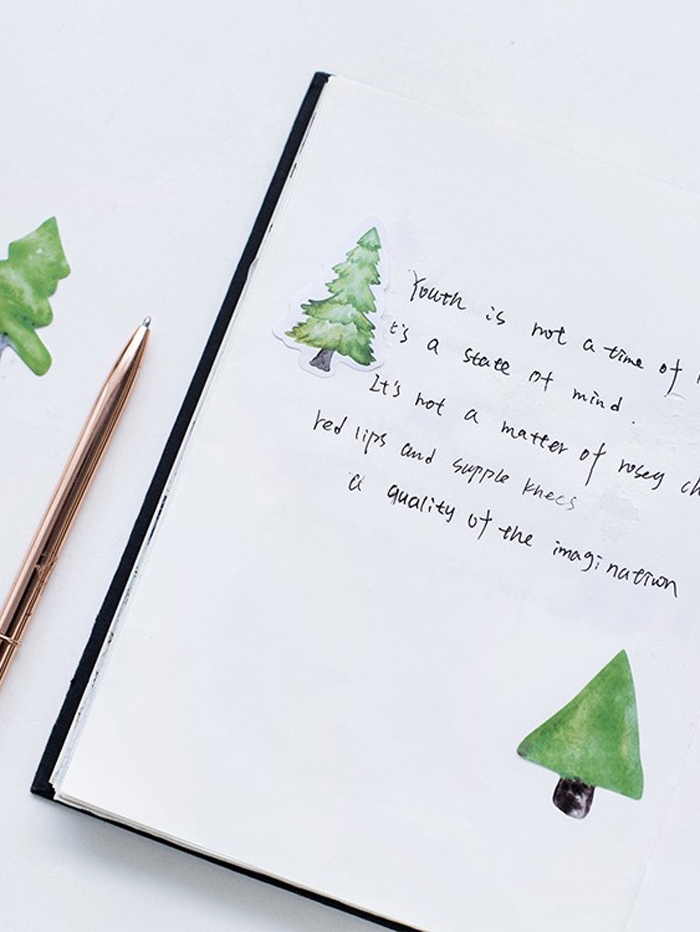 Youth is not a time of
t's a state of mind.
It's not a matter of rosey ch
red lips and supple knees
a quality of the imagination